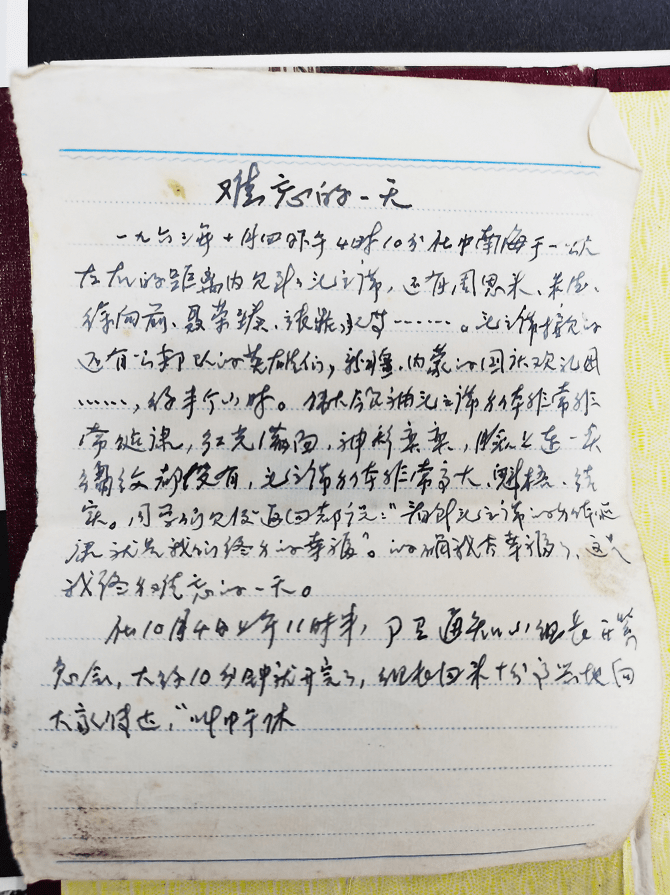 难忘的一天
一九六三年十月四日下午4时10分在中南海于一公尺
左右的距离内见到了毛主席，还有周恩来、朱德、
徐向前、聂荣臻、……。毛主席接见的
还有公部队的英雄们，新疆、内蒙的国庆观礼团
……，约半个小时。伟大领袖毛主席身体非常非
常健康，红光满面，神彩奕奕，脸上连一条
皱纹都没有，毛主席身体非常高大、魁梧、结
实。同学们见后返回都说：“看到毛主席的身体健
康就是我们终身的幸福”。的确我太幸福了，这是
我终身难忘的一天。
在10月4日上午11时半，卫通知小组长开紧
急会，大约10分钟就开完了，组长回来十分高兴地向
大家传达，“叫中午休